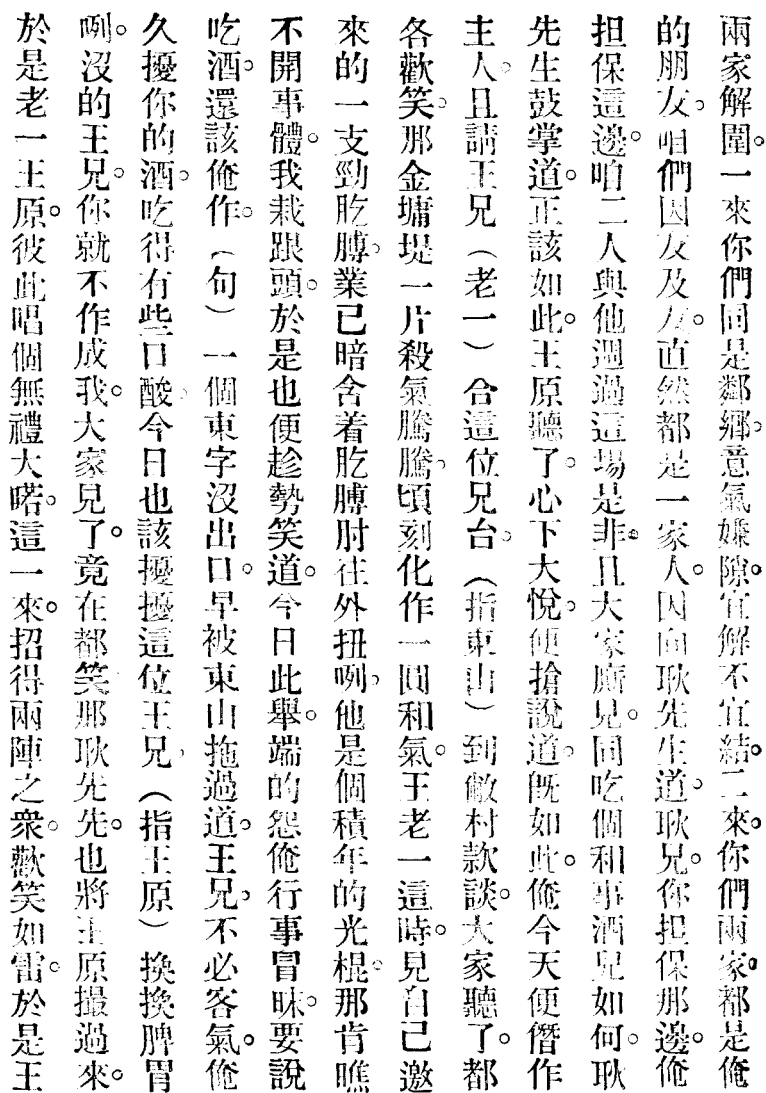 兩家解圍。一來你們同是鄰鄉。意氣嫌隙。宜解不宜結。二來。你們兩家。都是俺
的朋友。咱們因友及友。直然都是一家人。因向耿先生道。耿兄。你担保那邊。俺
担保這邊。咱二人與他週過這場是非。且大家廝見。同吃個和事酒。兄如何。耿
先生鼓掌道。正該如此。王原聽了。心下大悅。便搶說道。既如此。俺今天便僭作
主人。且請王兄（老一）合這位兄台。（指東山）到敝村款談。大家聽了。都
各歡笑。那金墉堤一片殺氣騰騰。頃刻化作一團和氣。王老一這時。見自己邀
來的一支勁肐膊。業已暗含着肐膊肘往外扭咧。他是個積年的光棍。那肯瞧
不開事體。我栽跟頭。於是也便趁勢笑道。今日此舉。端的怨俺行事冒昧。要說
吃酒。還該俺作。（句）一個東字沒出口。早被東山拖過道。王兄。不必客氣。俺
久擾你的酒。吃得有些口酸。今日也該擾擾這位王兄。（指王原）換換脾胃
咧。沒的王兄。你就不作成我。大家見了。竟在都笑那耿先先。也將王原撮過來。
於是老一王原。彼此唱個無禮大喏。這一來。招得兩陣之衆。歡笑如雷。於是王